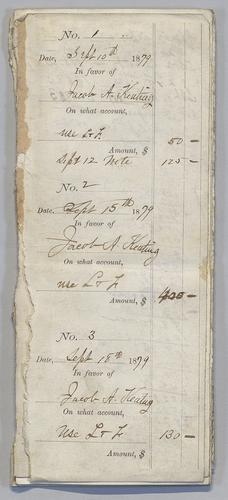 No. 1
Date, Sept 10th 1879
In favor of
Jacob A. Keating
On what account,
use L & L
50 –
Amount, $
Sept 12 Note 125 –
No. 2
Date, Sept 15th 1879
In favor of
Jacob A Keating
On what account,
use L & L
Amount, $
No. 3
Date, Sept 18th 1879
In favor of
Jacob A. Keating
On what account,
use L & L 130 –
Amount, $